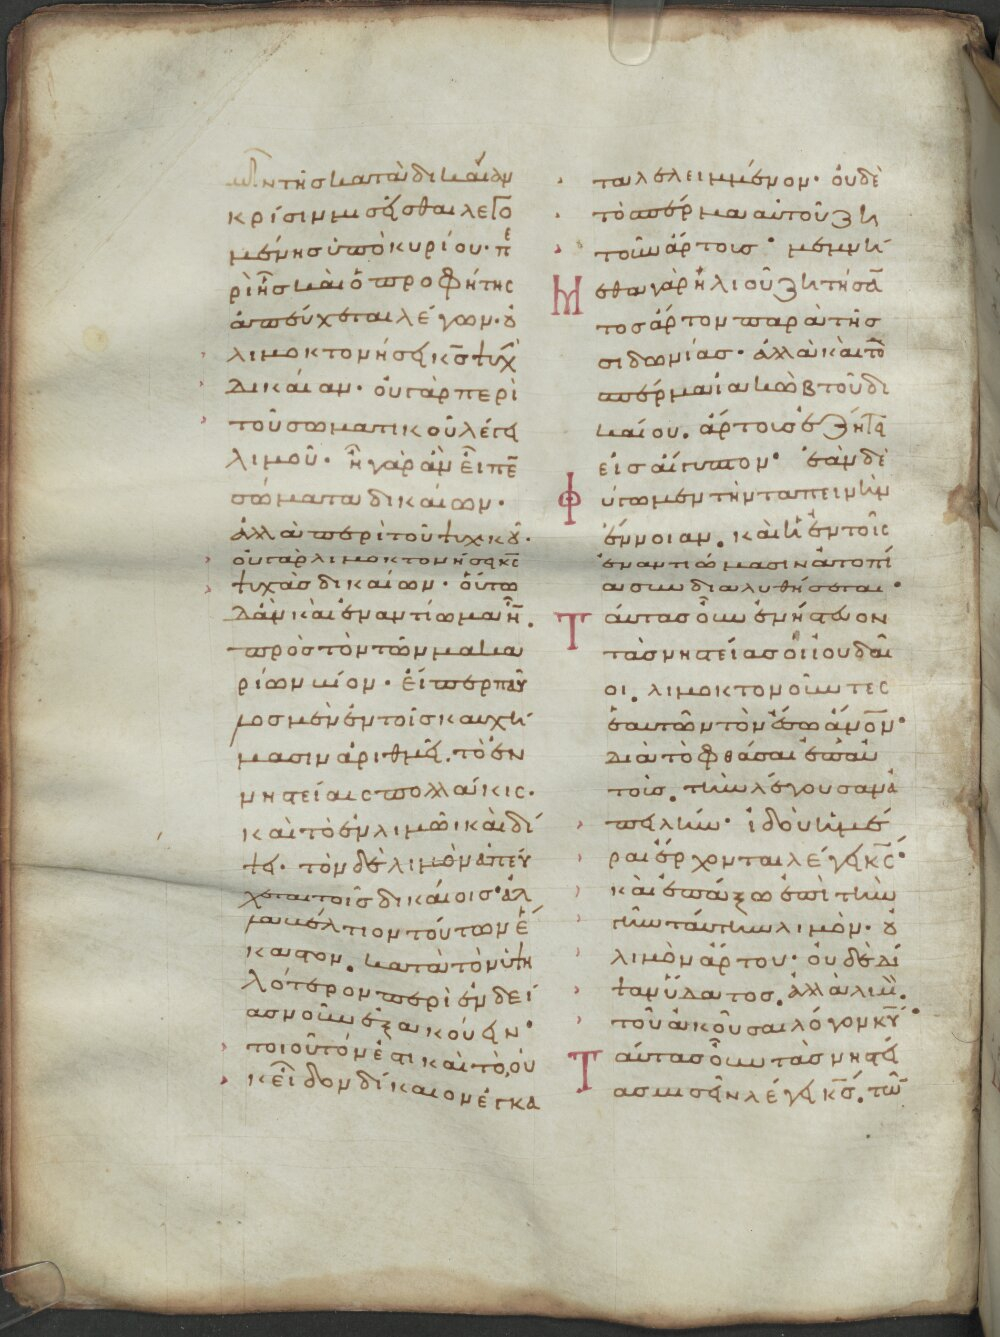 τὴν τῆς κατὰ δικαίων
κρίσιν μισεῖσθαι λεγο
μένης ὑπὸ κυρίου· πε
ρὶ ἧς καὶ ὁ προφήτης
ἀπεύχεται λέγων· οὐ
λιμοκτονήσει κς ψυχὴ
δικαίαν· οὐ γὰρ περὶ
τοῦ σωματικοῦ λέγει
λιμοῦ· ἦ γὰρ ἂν εἶπεν
σώματα δικαίων·
ἀλλὰ περὶ τοῦ ψυχικοῦ·
οὐ γὰρ λιμοκτονήσει κς
ψυχὰς δικαίων· οὕτω
δ' ἂν καὶ ἐναντίωμα ἦν.
πρὸς τὸν τῶν μακα
ρίων βίον· εἴπερ παῦ
λος μὲν ἐν τοῖς καυχή
μασιν ἀριθμεῖ. τὸ ἐν
νηστείαις πολλάκις·
καὶ τὸ ἐν λιμῶι καὶ δί
ψει· τὸν δὲ λιμὸν ἀπεύ
χεται τοῖς δικαίοις· ἀλ
λὰ βέλτιον τούτων ἕ
καστον. κατὰ τὸν ὑψη
λότερον περὶ ἐνδεί
ας νοῦν ἐξακούειν·
τοιοῦτόν ἐστι καὶ τὸ, οὐ
κ εἶδον δίκαιον ἐγκα
ταλελειμμένον· οὐδὲ
τὸ σπέρμα αὐτοῦ ζη
τοῦν ἄρτους· μέμνη
σθαι γὰρ ἠλιοῦ ζητήσαν
τος ἄρτον παρὰ τῆς
σιδωνίας· ἀλλὰ καὶ τὸ
σπέρμα ἰακὼβ τοῦ δι
καίου. ἄρτους ἐζήτει
εἰς αἴγυπτον· ἐὰν δὲ
φύγωμεν τὴν ταπεινὴν
ἔννοιαν. καὶ ἡ ἐν τοῖς
ἐναντιώμασιν ἀτοπί
α συνδιαλυθήσεται·
Ταύτας οὖν ἐνήστευον
τὰς νηστείας οἱ ἰουδαῖ
οι. λιμοκτονοῦντες
ἑαυτῶν τὸν ἔσω ἄνον·
διὰ τὸ φθάσαι ἐπ' αὐ
τοὺς. τὴν λέγουσαν ἀ
πειλὴν· ἰδοὺ ἡμέ
ραι ἔρχονται λέγει κς·
καὶ ἐπάξω ἐπὶ τὴν
γῆν ταύτην λιμὸν· οὐ
λιμὸν ἄρτου· οὐδὲ δί
ψαν ὕδατος. ἀλλὰ λιμὸν.
τοῦ ἀκοῦσαι λόγον κυ·
Ταύτας οὖν τὰς νηστεί
ας μισεῖν λέγει κς. τῶν